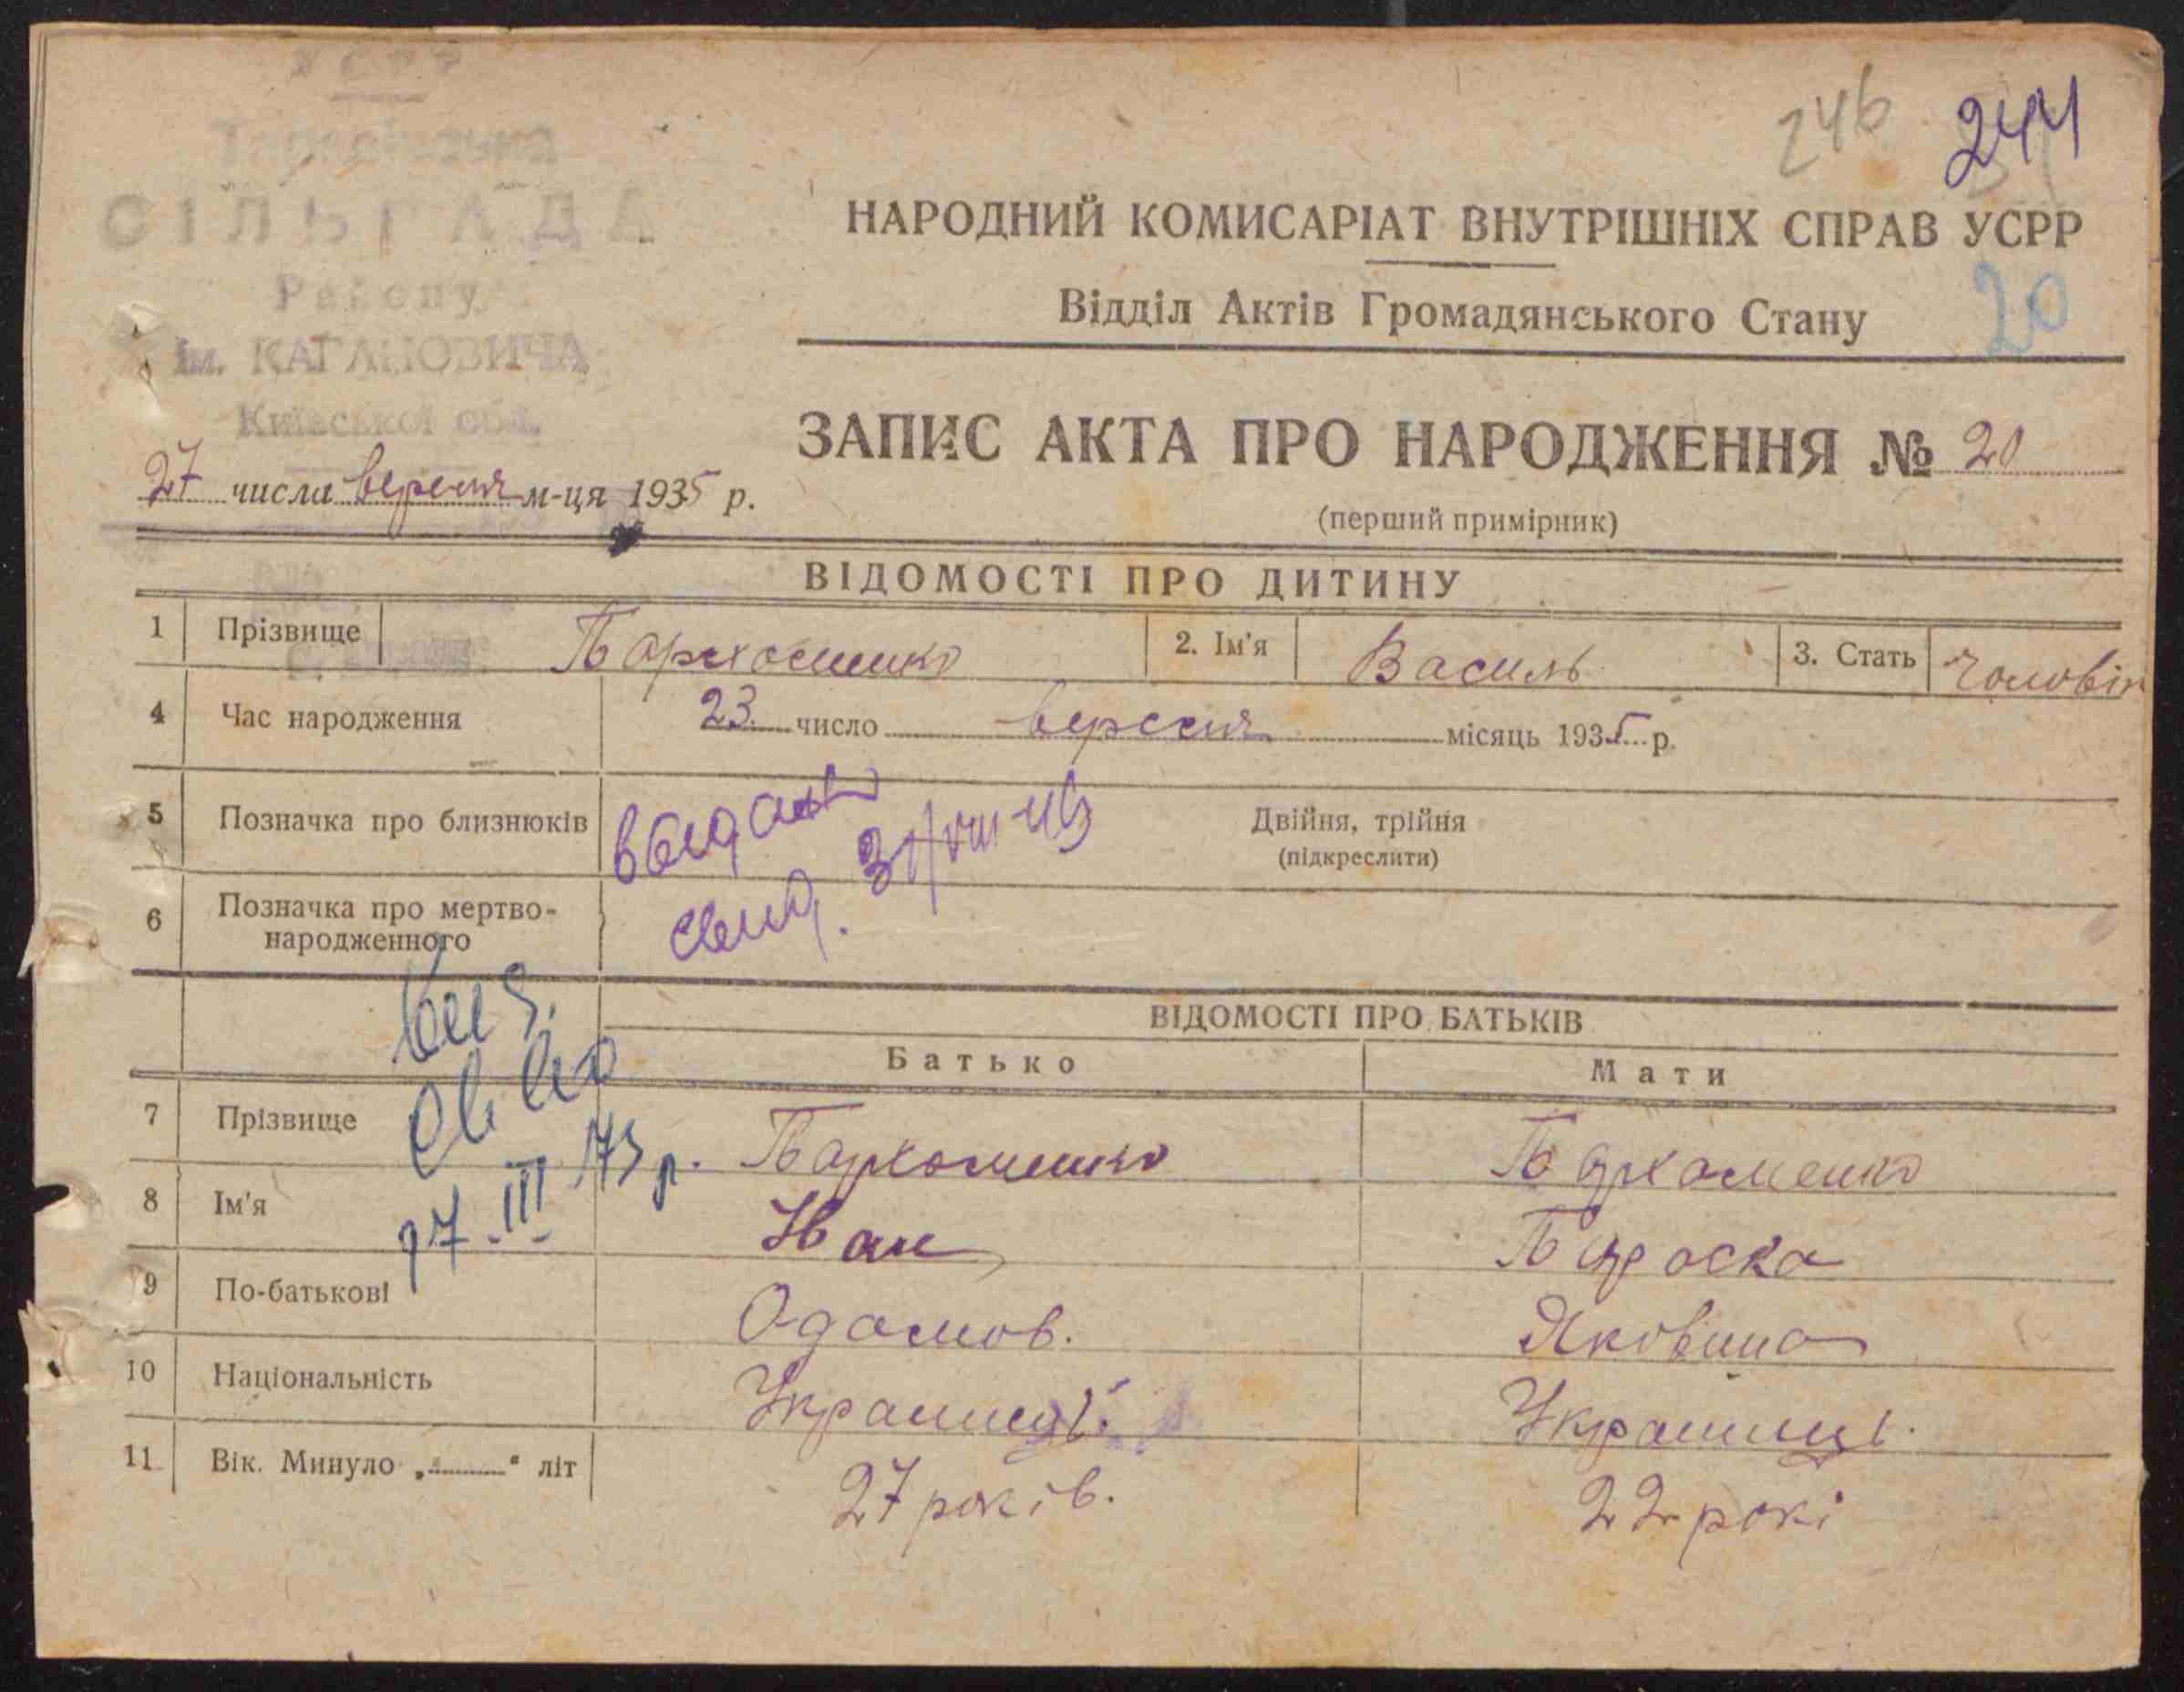 УСРР
СІЛЬРАДА
Району
Ім. КАГАНОВИЧА
Київської обл.
246 244
НАРОДНИЙ КОМИСАРІАТ ВНУТРІШНІХ СПРАВ УСРР
Відділ Актів Громадянського Стану
20
ЗАПИС АКТА ПРО НАРОДЖЕННЯ № 20
27 числа вересня м-ця 1935 р.
(перший примірник)
ВІДОМОСТІ ПРО ДИТИНУ
1 Прізвище Пархоменко 2. Ім'я Василь 3. Стать чоловік
4 Час народження 23 число вересня місяць 1935 р.
5 Позначка про близнюків Двійня, трійня
(підкреслити)
выдано
свид. 31/VIII-49
6 Позначка про мертво-
народженного
ВІДОМОСТІ ПРО БАТЬКІВ
Батько Мати
7 Прізвище Пархоменко Пархоменко
8 Ім'я Іван Параска
9 По-батькові Одамов. Яковина
10 Національність Украинці. Украинці.
11 Вік. Минуло „ “ літ 27 років. 22 рокі
27.III 173 р.